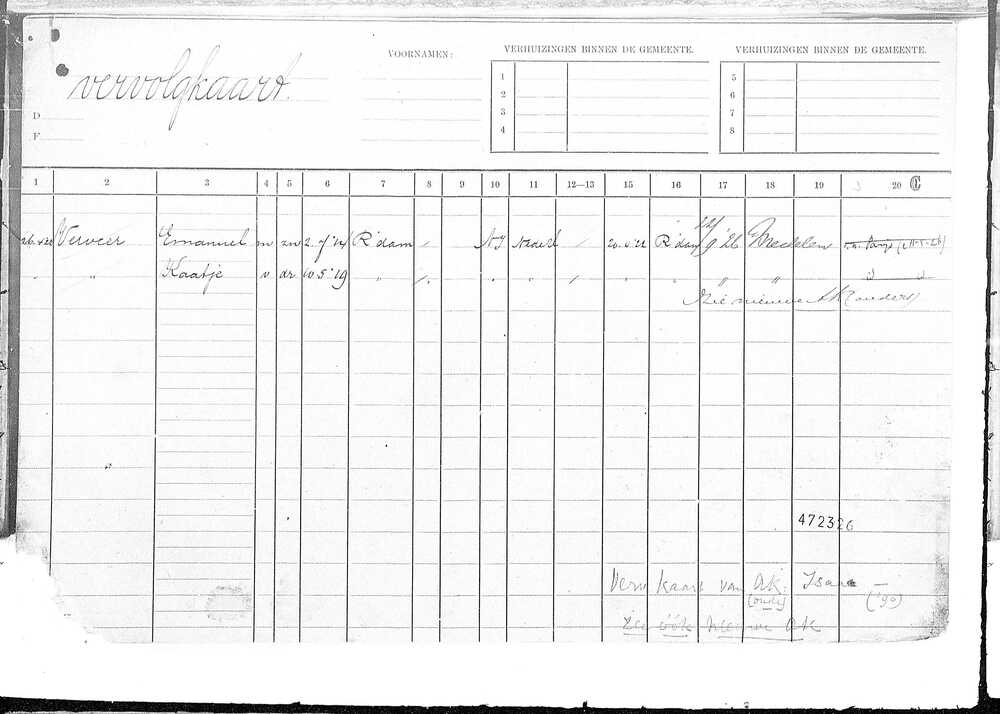 VOORNAMEN:
VERHUIZINGEN BINNEN DE GEMEENTE.
VERHUIZINGEN BINNEN DE GEMEENTE.
vervolgkaart.
1
2
3
4
5
6
7
8
D
F
1 2 3 4 5 6 7 8 9 10 11 12—13 15 16 17 18 19 20
Verveer Emanuel m zn 2.7.'14 R'dam / N.I. Nederl / R'dam
" " Kaatje v dr 10.5.'19 " / " " / " " " "
Zie nieuwe AK (ouders)
472326
Verv kaart van AK. Isaac — ('90)
(oude)
zie óók nieuwe AK